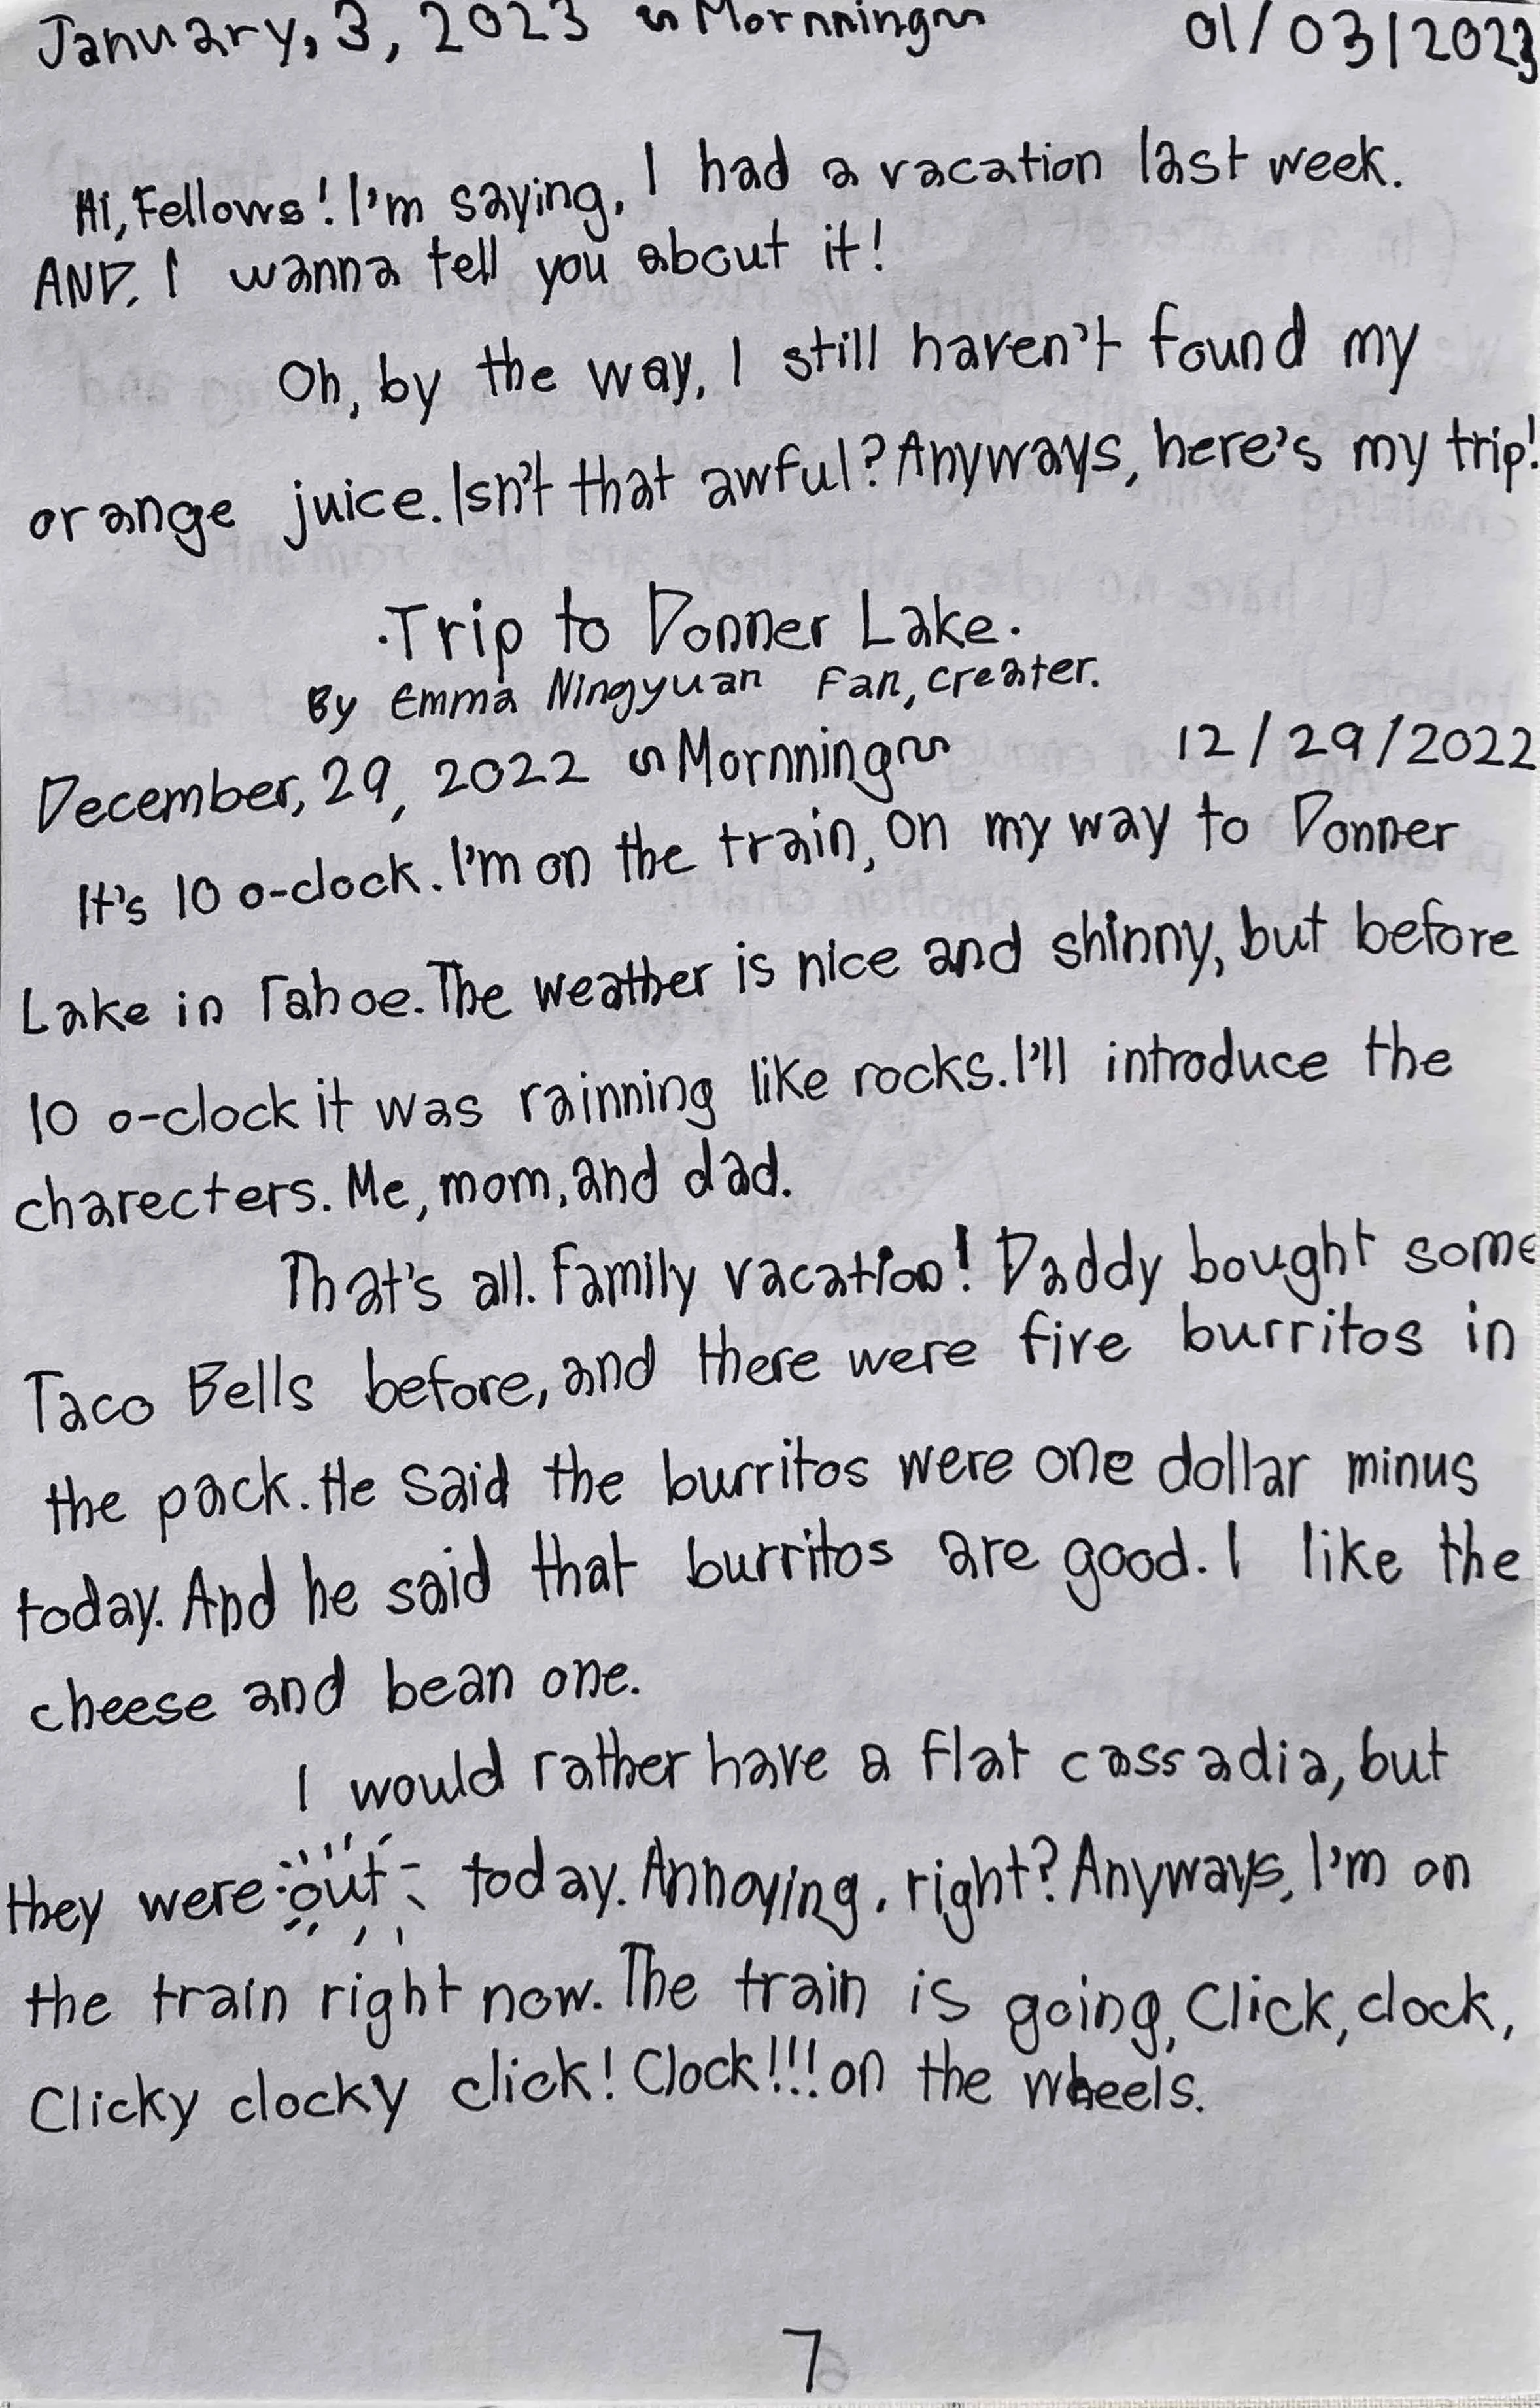 January, 3, 2023 ~Mornning~ 01/03/2023
Hi, Fellows! I'm saying, I had a vacation last week.
AND, I wanna tell you about it!
Oh, by the way, I still haven't found my
orange juice. Isn't that awful? Anyways, here's my trip!
·Trip to Donner Lake·
By Emma Ningyuan Fan, creater.
December, 29, 2022 ~Mornning~ 12/29/2022
It's 10 o-clock. I'm on the train, on my way to Donner
Lake in Tahoe. The weather is nice and shinny, but before
10 o-clock it was rainning like rocks. I'll introduce the
charecters. Me, mom, and dad.
That's all. Family vacation! Daddy bought some
Taco Bells before, and there were five burritos in
the pack. He said the burritos were one dollar minus
today. And he said that burritos are good. I like the
cheese and bean one.
I would rather have a flat cassadia, but
they were out today. Annoying, right? Anyways, I'm on
the train right now. The train is going, Click, clock,
Clicky clocky click! Clock!!! on the wheels.
7